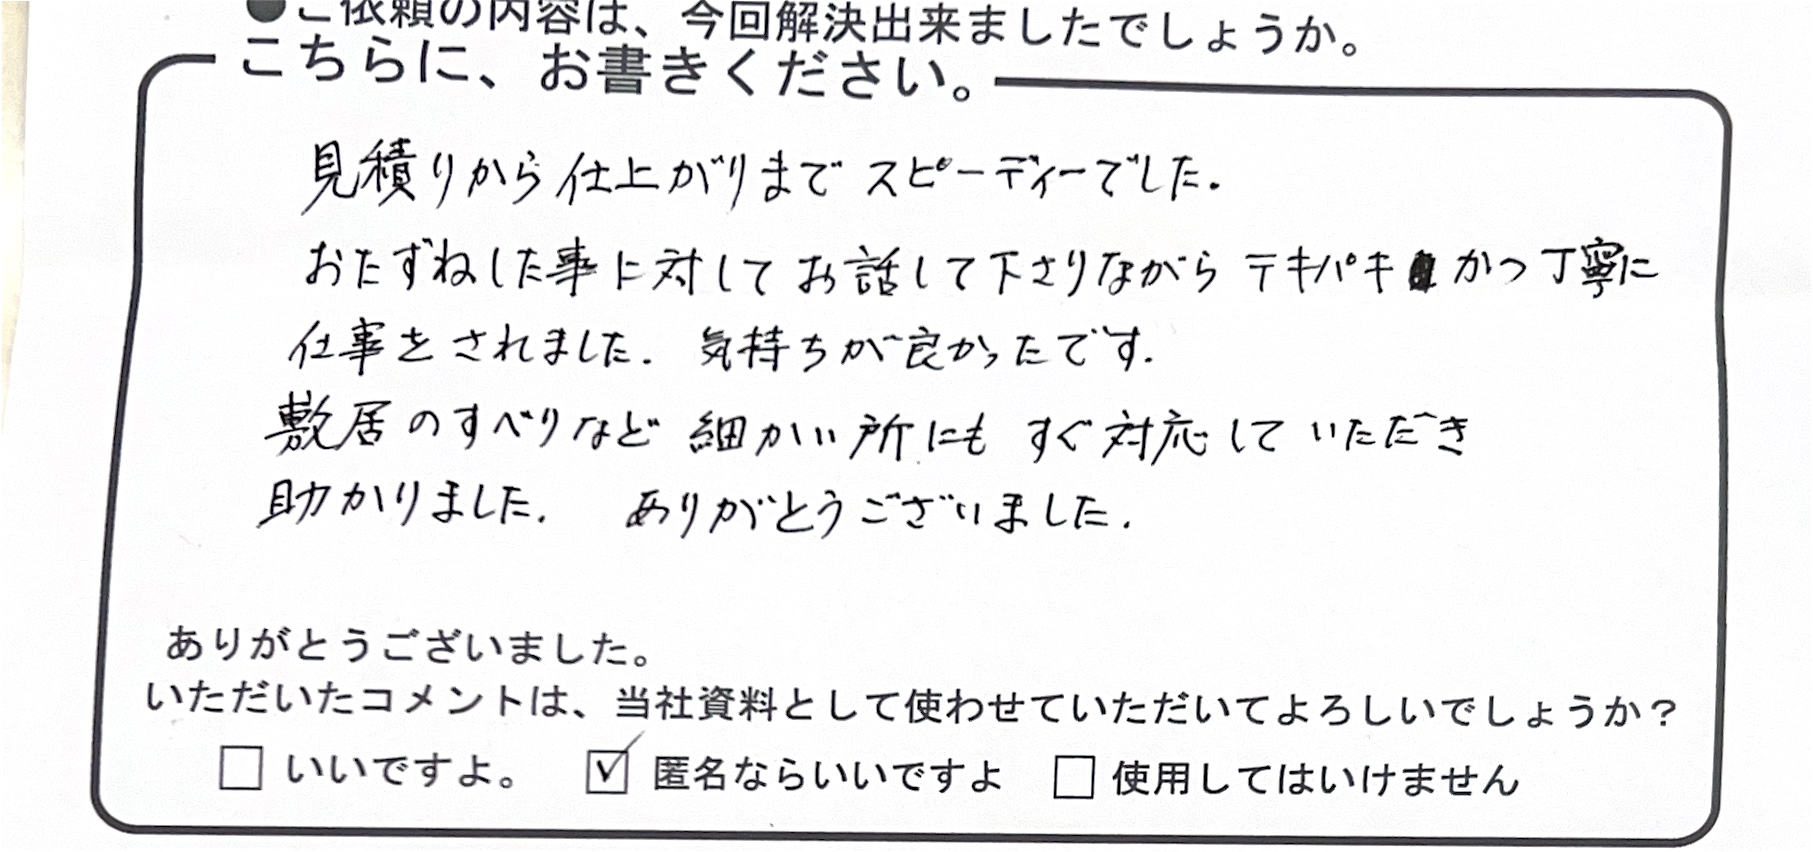 ●ご依頼の内容は、今回解決出来ましたでしょうか。
こちらに、お書きください。
見積りから仕上がりまでスピーディーでした.
おたずねした事に対してお話して下さりながらテキパキかつ丁寧に
仕事をされました. 気持ちが良かったです.
敷居のすべりなど細かい所にもすぐ対応していただき
助かりました. ありがとうございました.
ありがとうございました。
いただいたコメントは、当社資料として使わせていただいてよろしいでしょうか？
□ いいですよ。 ☑ 匿名ならいいですよ □ 使用してはいけません